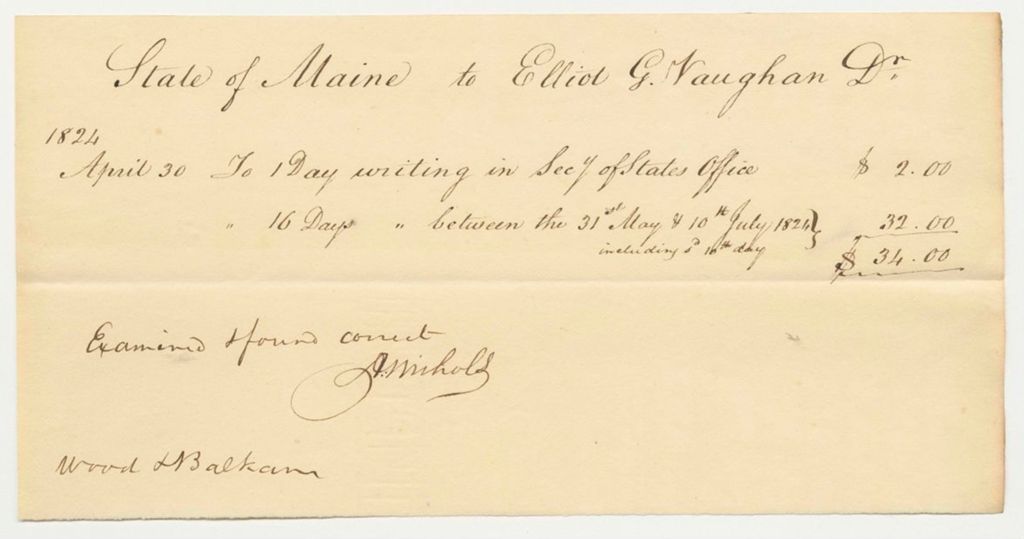 State of Maine to Elliot G. Vaughan Dr
1824
April 30 To 1 Day writing in Secy of States Office $ 2.00
" 16 Days " between the 31st May & 10th July 1824 } 32.00
including sd 10th day
$ 34.00
Examined & found correct
A. Nichols
Wood & Balkam